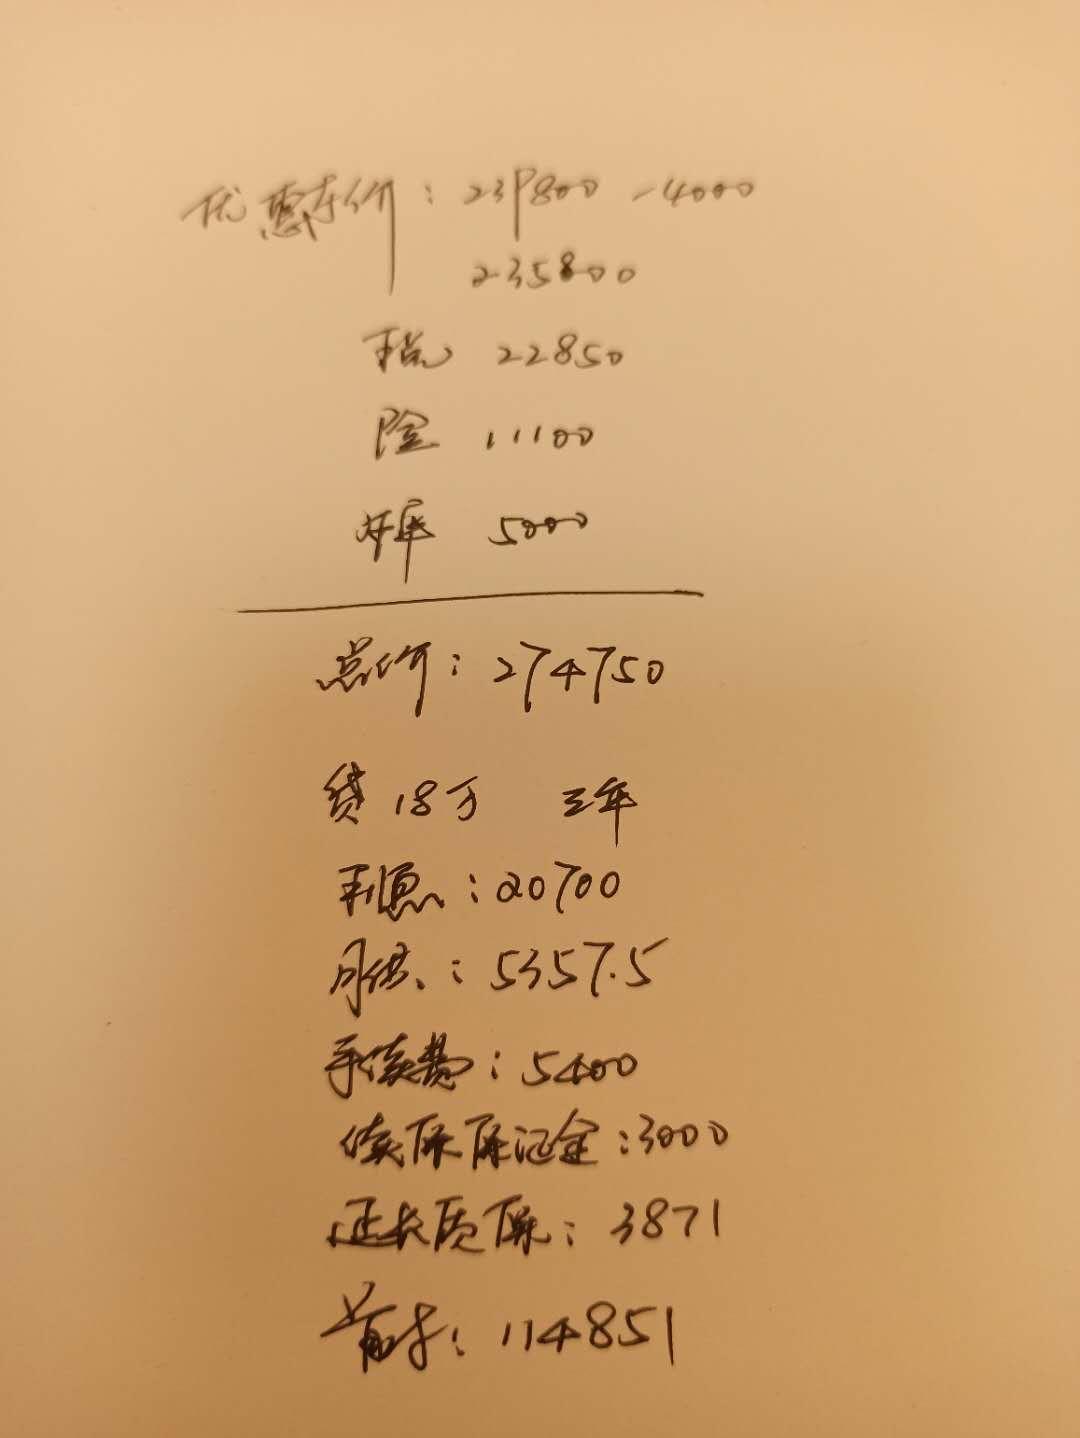 优惠车价：239800 -4000
235800
税 22850
险 11100
5000
总价：274750
贷18万 三年
利息：20700
月供：5357.5
手续费：5400
续保保证金：3000
延长质保：3871
首付：114851